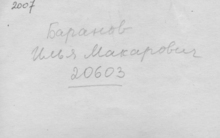 2007
Баранов
Илья Макарович
20603